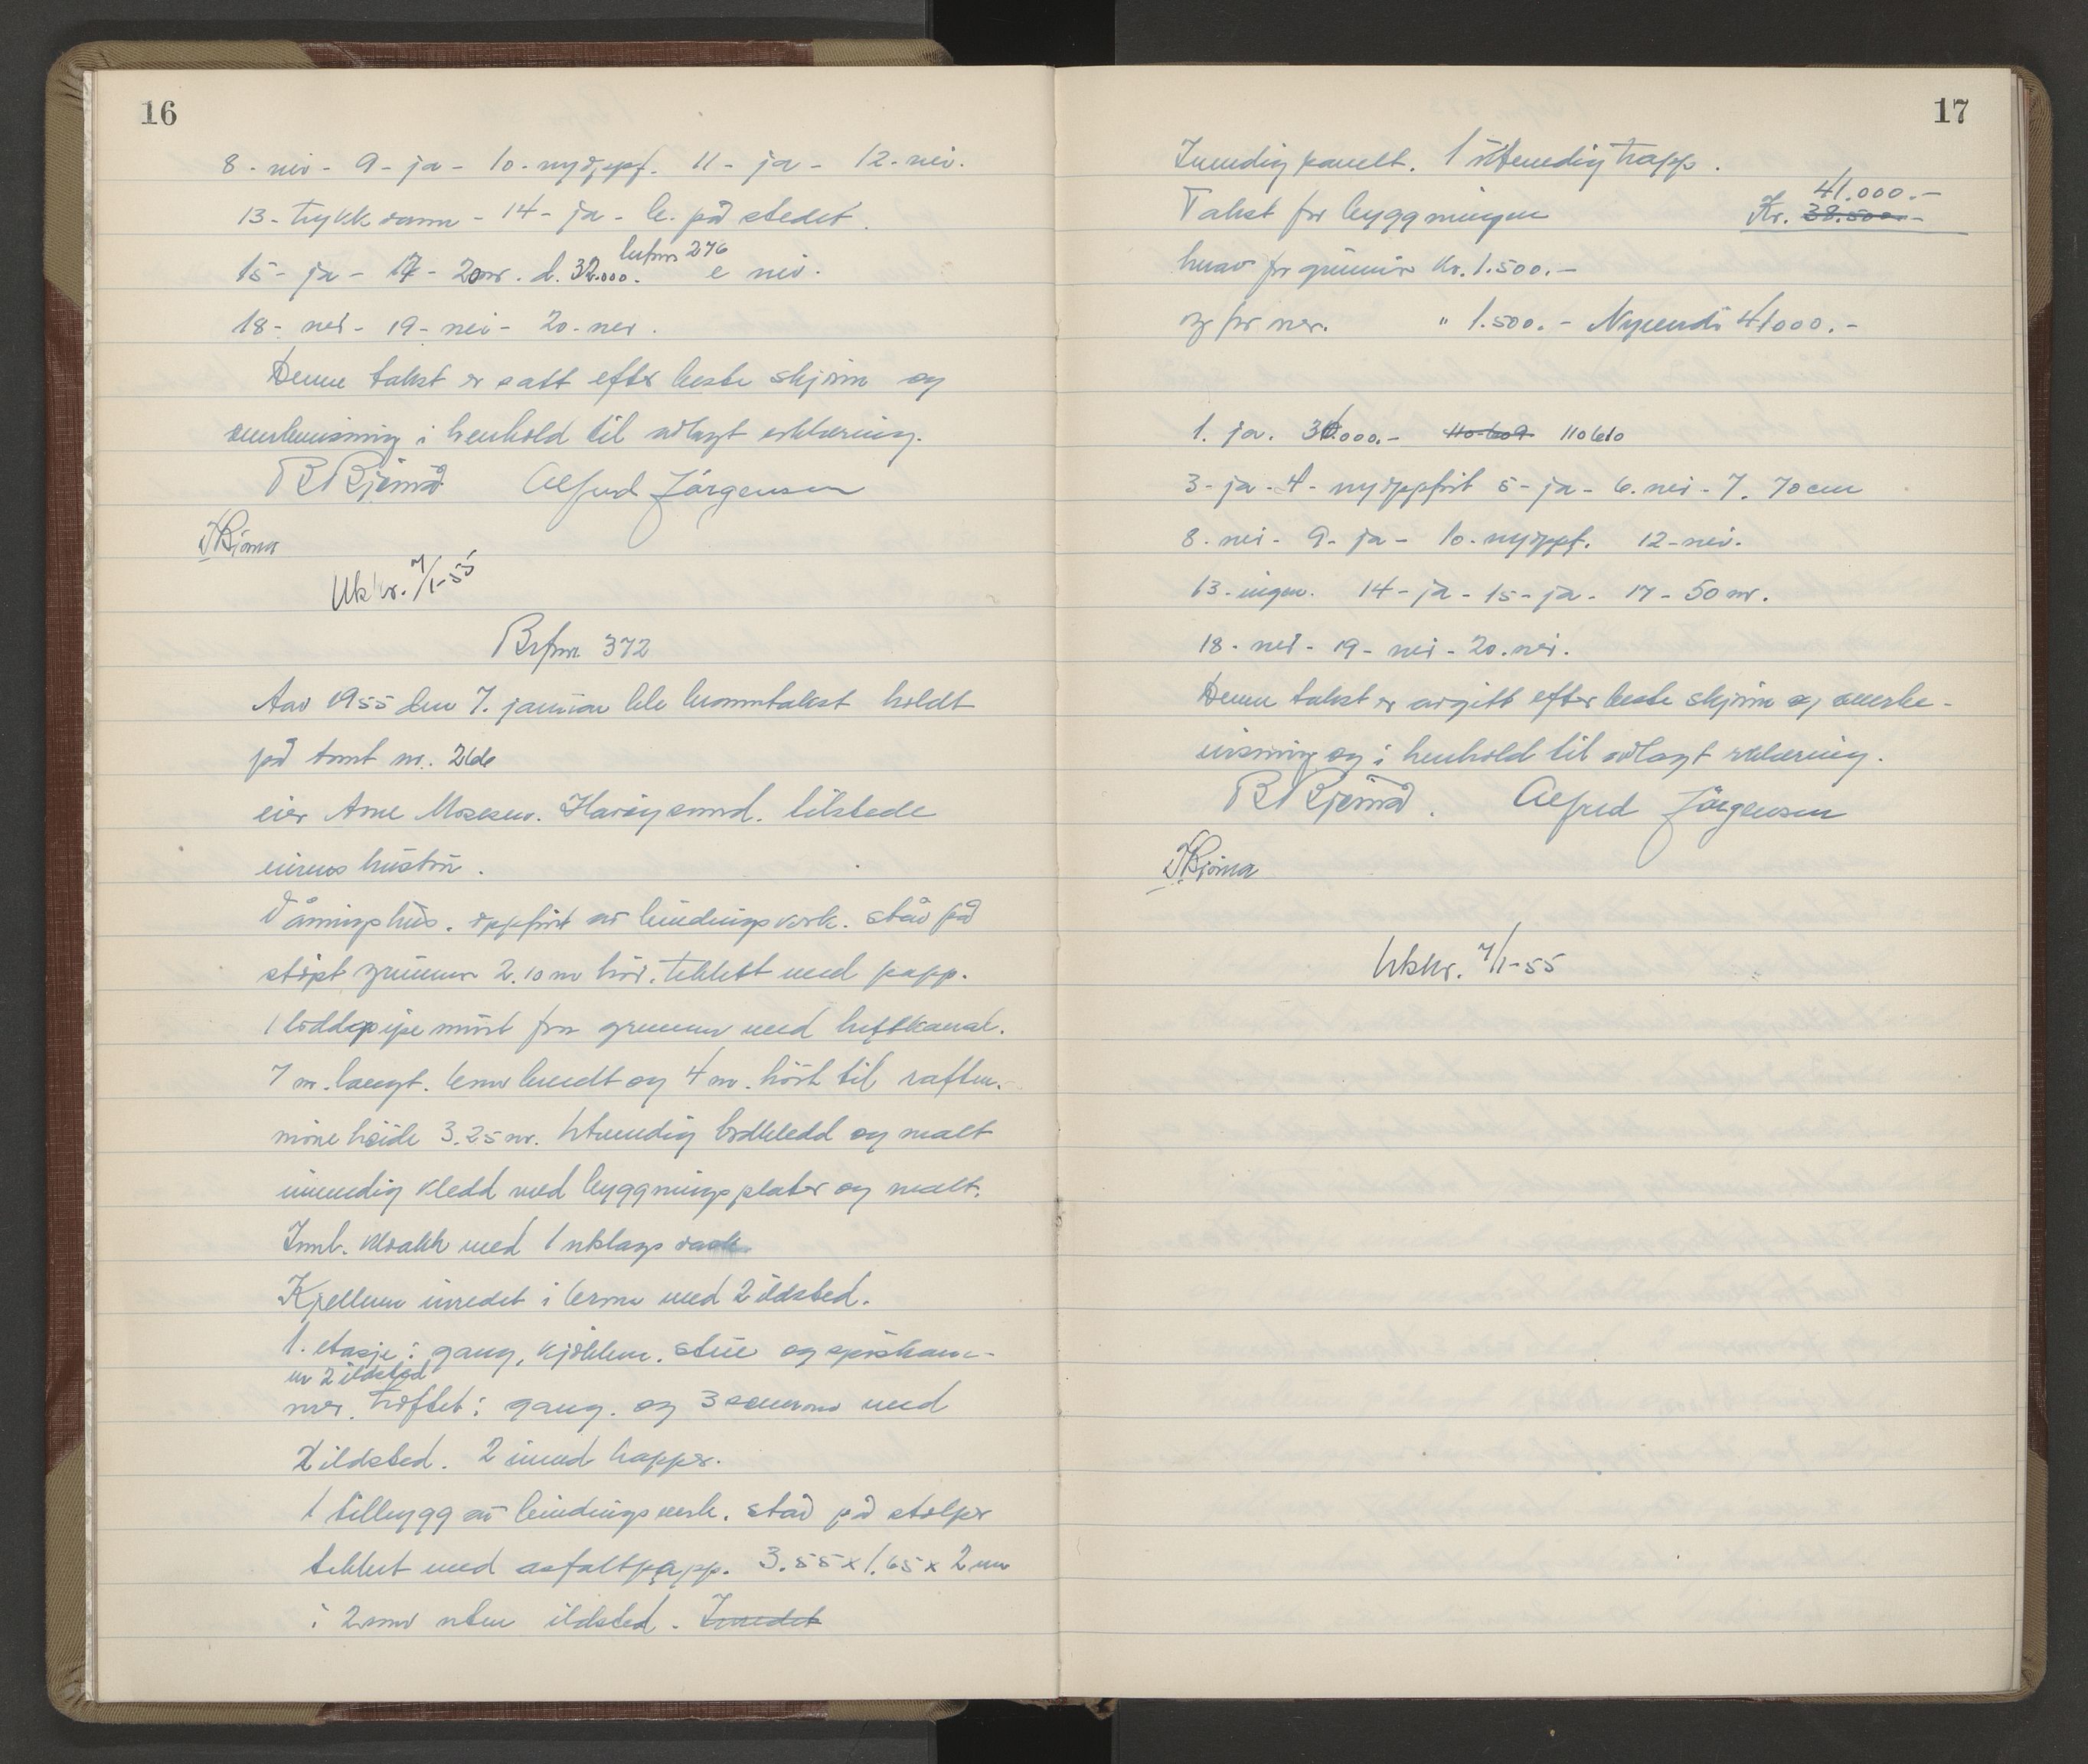 16
8 - nei - 9 - ja - 10 - nyoppf. 11 - ja - 12 - nei.
13 - trykkvann - 14 - ja - b. på stedet.
brfnr 276
15 - ja - 17 - 20 m. d. 32.000. e nei.
18 - nei - 19 - nei - 20 - nei.
Denne takst er satt efter beste skjönn og
overbevisning i henhold til avlagt erklæring.
B Bjerna Alfred Jörgensen
Utskr. 7/1-55
Brfnr. 372
Aar 1955 den 7. januar ble branntakst holdt
på tomt nr. 26
eier Arne Mosesen. Havöysund. tilstede
eierens hustru.
Våningshus. oppfört av bindingsverk. står på
stöpt grunnmur 2.10 m höi. tekket med papp.
1 loddepipe murt fra grunnen med luftkanal.
7 m. langt. 6 m bredt og 4 m. höit til raften.
möne höide 3.25 m. Utvendig bordkledd og malt
innvendig kledd med byggningsplater og malt.
Innl. kloakk med 1 utslags vask.
Kjelleren inredet i 6 rom med 2 ildsted.
1. etasje: gang, kjökken. stue og spiskam-
m 2 ildsted
mer. Loftet: gang. og 3 soverom med
2 ildsted. 2 innvd trapper.
1 tilbygg av bindingsverk. står på stolper
tekket med asfaltpapp. 3.55 x 1.65 x 2 m
i 2 rom uten ildsted. Inredet
17
Innvendig panelt. 1 utvendig trapp.
41.000.-
Takst for byggningen Kr. 38.500.-
hvav for grunmur Kr. 1.500.-
og for mer. " 1.500.- Nyverdi 41000.-
1. ja. 31.000.- 110609 110610
3 - ja - 4 - nyoppfört 5 - ja - 6. nei - 7. 70 cm
8. nei - 9 - ja - 10. nyoppf. 12 - nei.
13 - ingen. 14 - ja - 15 - ja - 17 - 50 m.
18 - nei - 19 - nei - 20. nei.
Denne takst er avgitt efter beste skjönn og overbe-
visning og i henhold til avlagt erklæring.
B Bjerna. Alfred Jörgensen
Utskr. 7/1-55